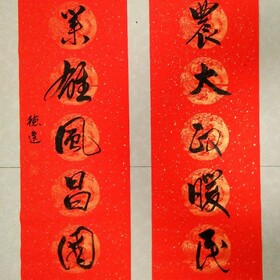 農大政暖民
業雄風昌國
德